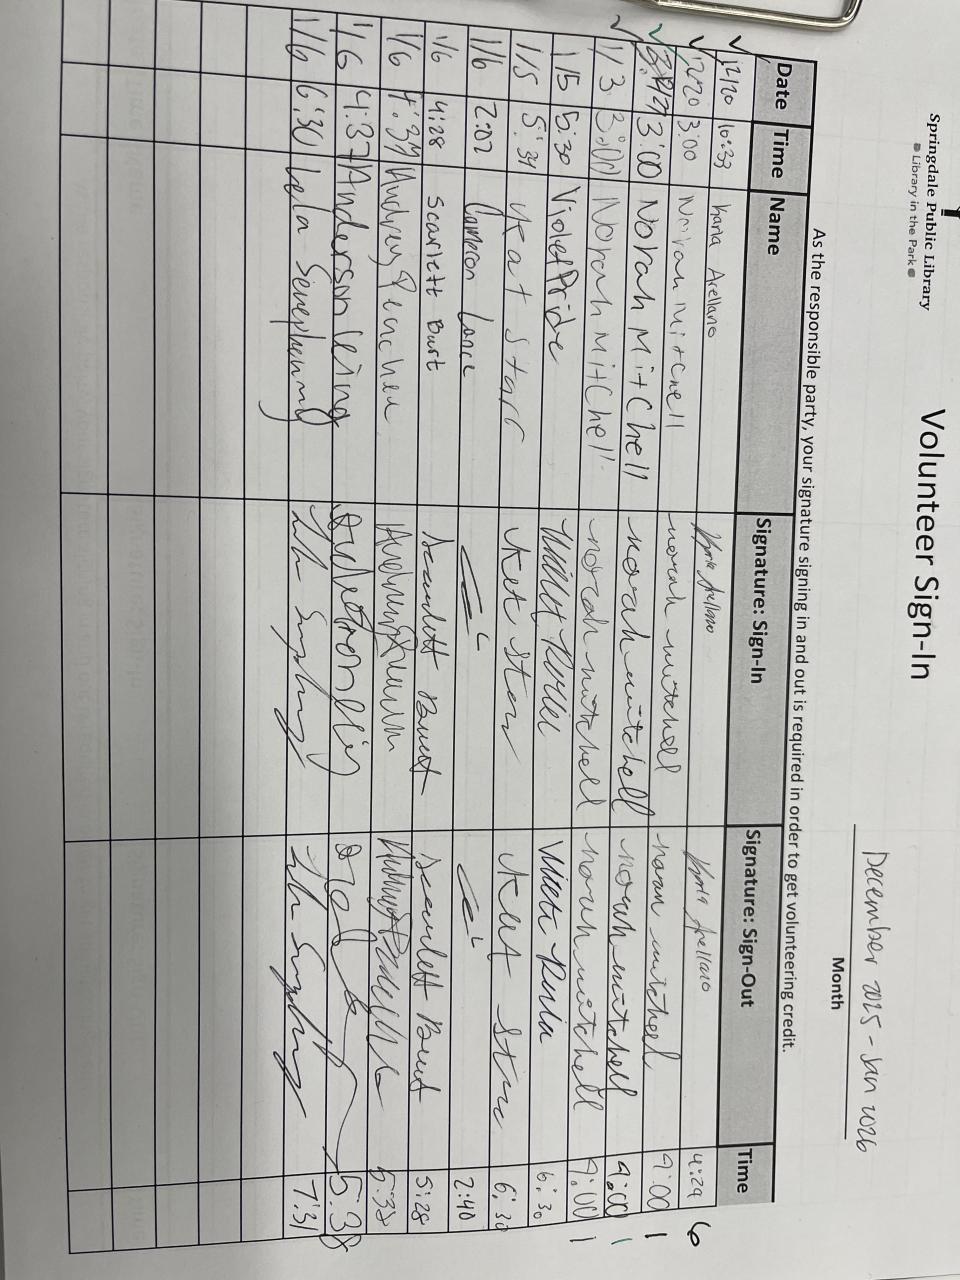 Springdale Public Library
Library in the Park
Volunteer Sign-In
December 2025 - Jan 2026
Month
As the responsible party, your signature signing in and out is required in order to get volunteering credit.
Date Time Name Signature: Sign-In Signature: Sign-Out Time
✓ 12/20 10:33 Karla Arellano Karla Arellano Karla Arellano 4:29 6
✓ 12/20 3:00 Norah Mitchell norah mitchell norah mitchell 4:00 1
✓ 3:00 Norah Mitchell norah mitchell norah mitchell 4:00 1
✓ 1/3 3:00 Norah Mitchell norah mitchell norah mitchell 4:00 1
1/5 5:30 Violet Pride 6:30
1/5 5:34 Kat Starr Kat Starr Kat Starr 6:30
1/6 2:02 Cameron Lance CL CL 2:40
1/6 4:28 Scarlett Burt Scarlett Burt Scarlett Burt 5:28
1/6 4:37 Audrey 5:38
1/6 4:37 Anderson 5:38
1/6 6:30 Lela 7:31